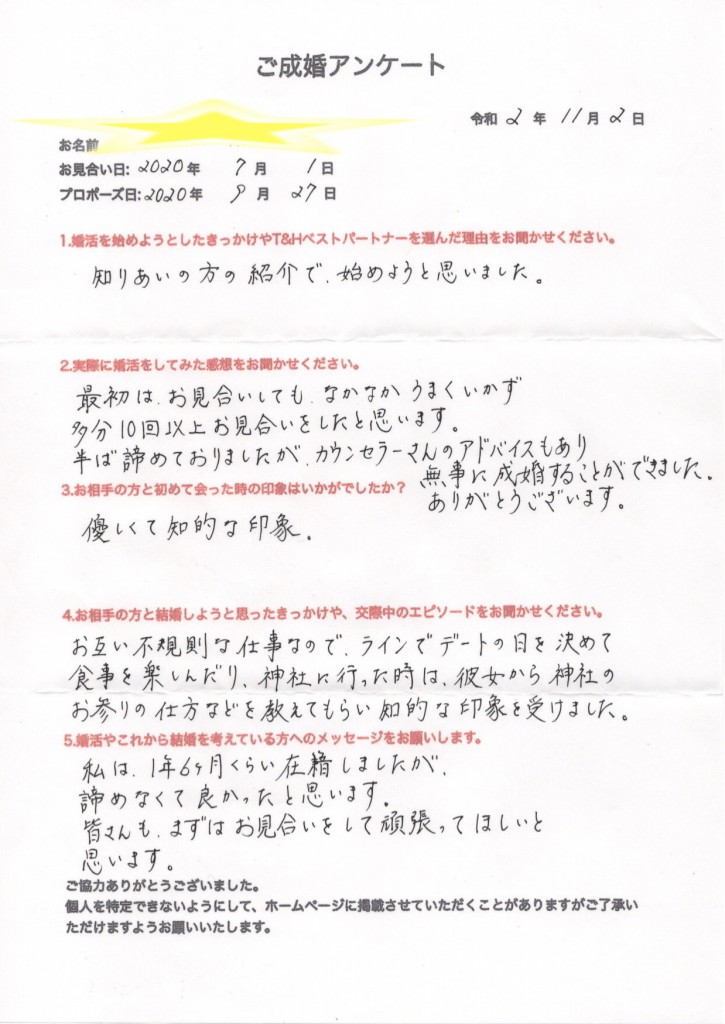 ご成婚アンケート
令和 2 年 11 月 2 日
お名前
お見合い日: 2020 年 7 月 1 日
プロポーズ日: 2020 年 9 月 27 日
1.婚活を始めようとしたきっかけやT&Hベストパートナーを選んだ理由をお聞かせください。
知りあいの方の紹介で、始めようと思いました。
2.実際に婚活をしてみた感想をお聞かせください。
最初は、お見合いしても、なかなかうまくいかず
多分10回以上お見合いをしたと思います。
半ば諦めておりましたが、カウンセラーさんのアドバイスもあり
無事に成婚することができました。
ありがとうございます。
3.お相手の方と初めて会った時の印象はいかがでしたか?
優しくて知的な印象。
4.お相手の方と結婚しようと思ったきっかけや、交際中のエピソードをお聞かせください。
お互い不規則な仕事なので、ラインでデートの日を決めて
食事を楽しんだり、神社に行った時は、彼女から神社の
お参りの仕方などを教えてもらい知的な印象を受けました。
5.婚活やこれから結婚を考えている方へのメッセージをお願いします。
私は、1年6ヶ月くらい在籍しましたが、
諦めなくて良かったと思います。
皆さんも、まずはお見合いをして頑張ってほしいと
思います。
ご協力ありがとうございました。
個人を特定できないようにして、ホームページに掲載させていただくことがありますがご了承い
ただけますようお願いいたします。